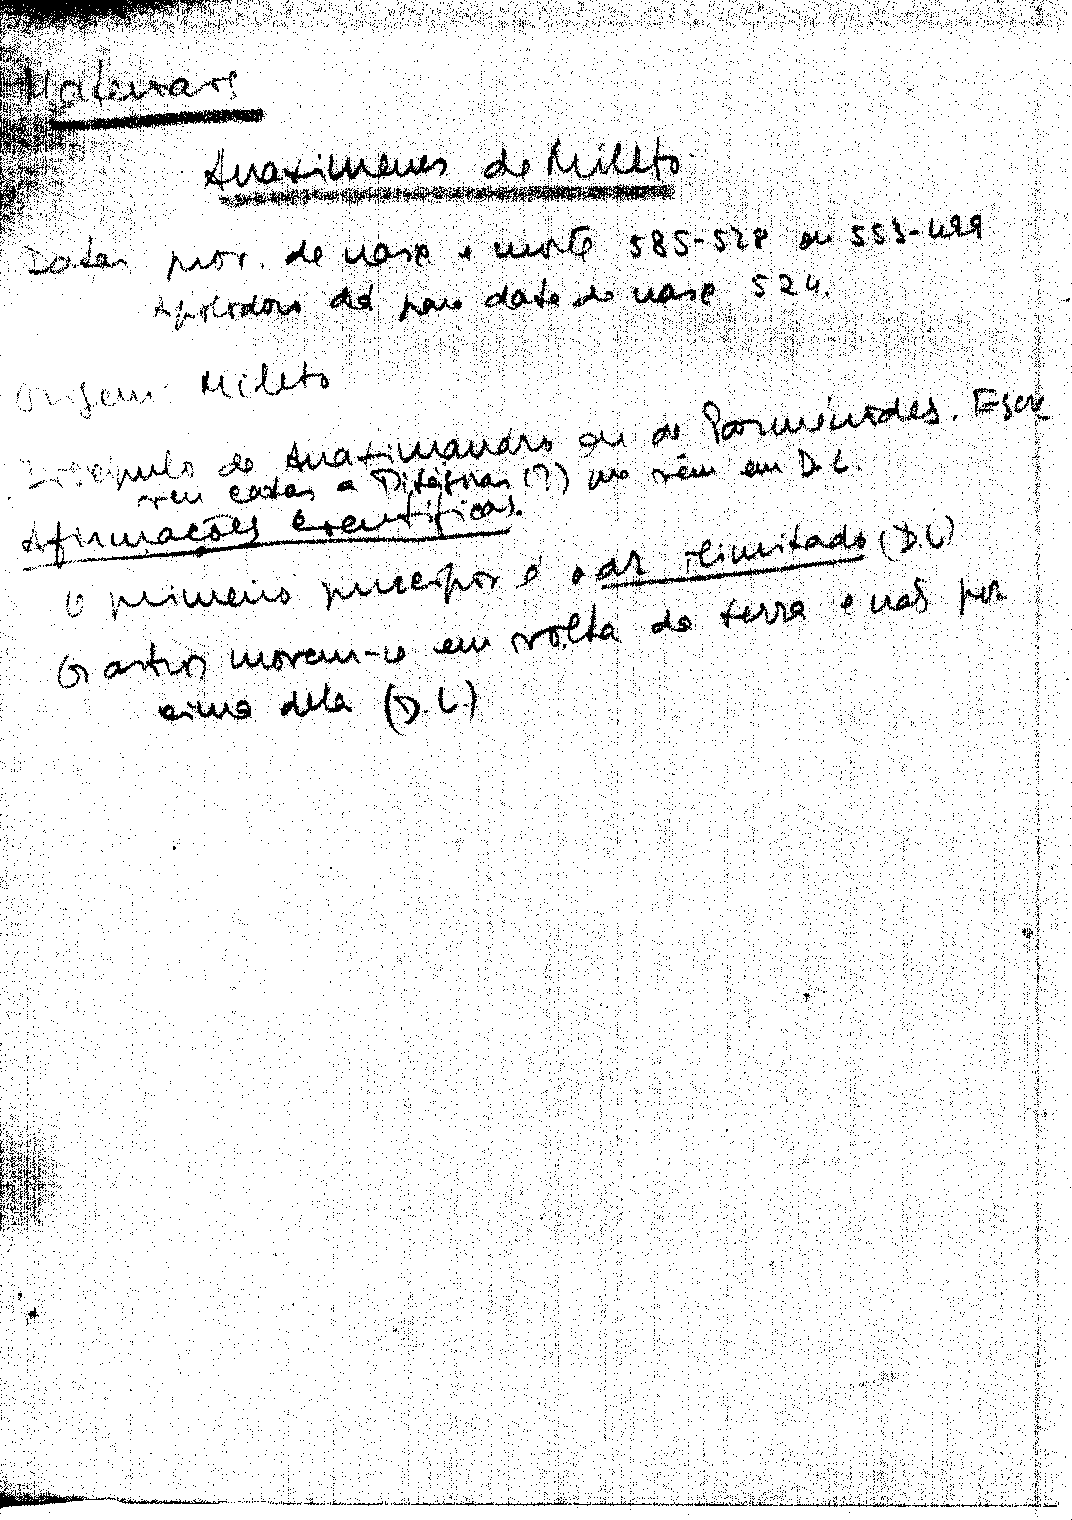 Materiais
Anaximenes de Mileto
Datas prov. de nasc e morte 585-528 ou 553-499
Apolodoro dá para data de nasc 524.
Origem Mileto
Discípulo de Anaximandro ou de Parménides. Escre
vem cartas a Pitágoras (?) que vêm em D.L.
Afirmações Científicas.
O primeiro princípio é o ar ilimitado (D.L)
Os astros movem-se em volta da terra e não por
cima dela (D.L.)